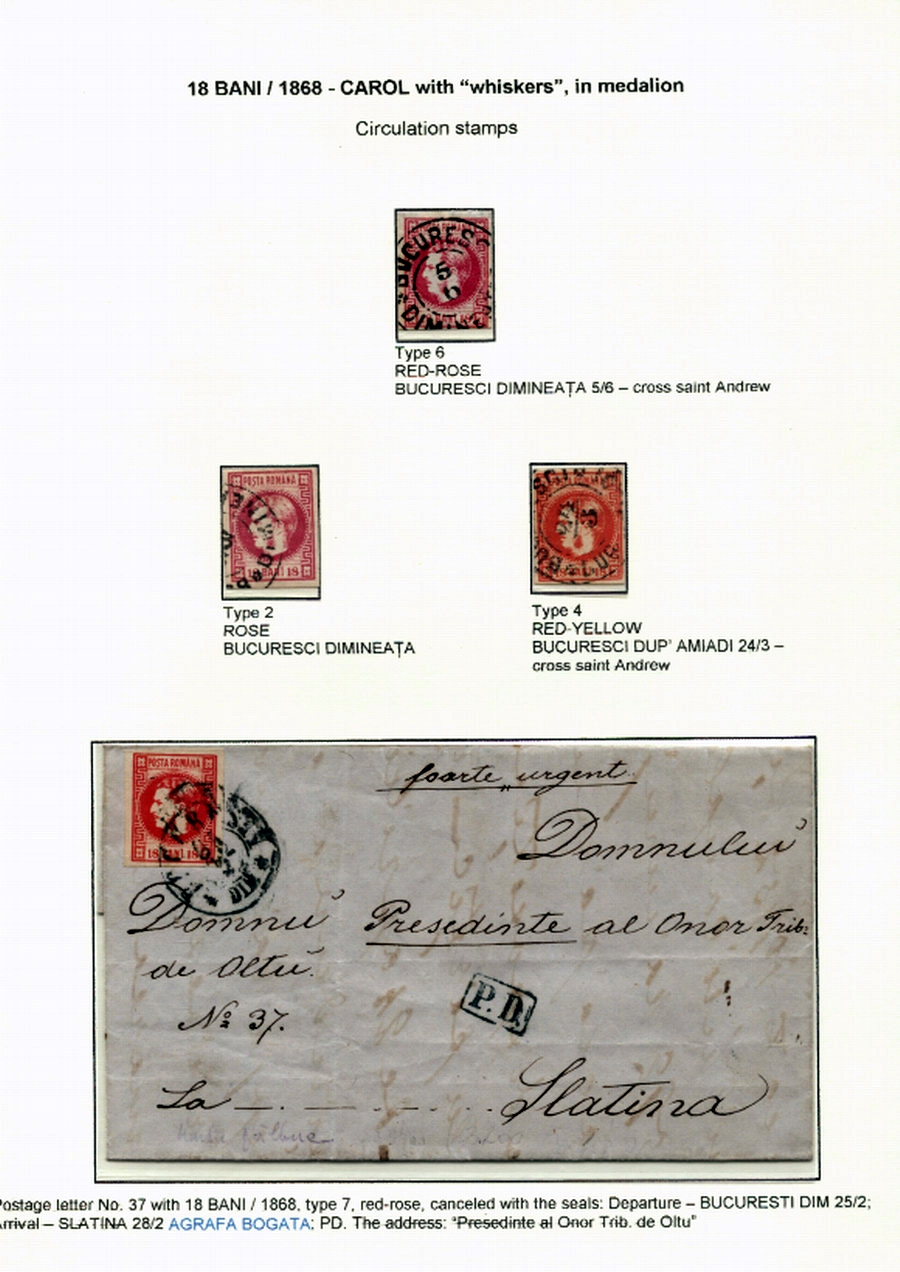 18 BANI / 1868 - CAROL with “whiskers”, in medalion
Circulation stamps
BUCURESC
5
6
DIMIN
Type 6
RED-ROSE
BUCURESCI DIMINEAȚA 5/6 – cross saint Andrew
POSTA ROMANA
18 BANI 18
Type 2
ROSE
BUCURESCI DIMINEAȚA
Type 4
RED-YELLOW
BUCURESCI DUP’ AMIADI 24/3 –
cross saint Andrew
POSTA ROMANA
18 BANI 18
DIM
foarte urgent
Domnului
Domnu
Presedinte al Onor Trib:
de Oltu
No 37.
P.D.
La — . — . - . - . . Slatina
Postage letter No. 37 with 18 BANI / 1868, type 7, red-rose, canceled with the seals: Departure – BUCURESTI DIM 25/2;
Arrival – SLATINA 28/2 AGRAFA BOGATA; PD. The address: “Presedinte al Onor Trib. de Oltu”